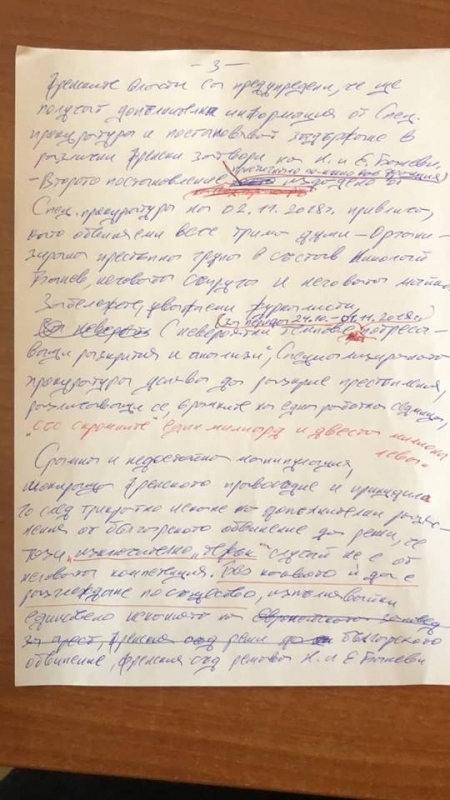 - 3 -
Френските власти са предупредени, че ще
получат допълнителна информация от Спец.
прокуратура и постановяват задържане в
различни френски затвори на Н. и Е. Баневи.
- Второто постановление издадено от
Спец. прокуратура на 02.11.2018г. привлича,
като обвиняеми вече трима души - Органи-
зирана престъпна група в състав Николай
Банев, неговата съпруга и неговата майка
Забележете, уважаеми журналисти,
/за периода 24.10 - 01.11.2018г./
С невероятни темпове, потреса-
ващи разкрития и анализи, Специализираната
прокуратура успява да разкрие престъпления,
разписващи се, в рамките на една работна седмица,
"със скромните един милиард и двеста милиона
лева"
Срамна и недостойна манипулация,
шокираща френското правосъдие и принудила
го след трикратно искане на допълнителни разяс-
нения от българското обвинение да реши, че
този "изключително тежък" случай не е от
неговата компетенция. Без каквото и да е
разглеждане по същество, използвайки
единствено искането на европейската заповед
за арест, френския съд реши да българското
обвинение, френския съд Н. и Е. Баневи